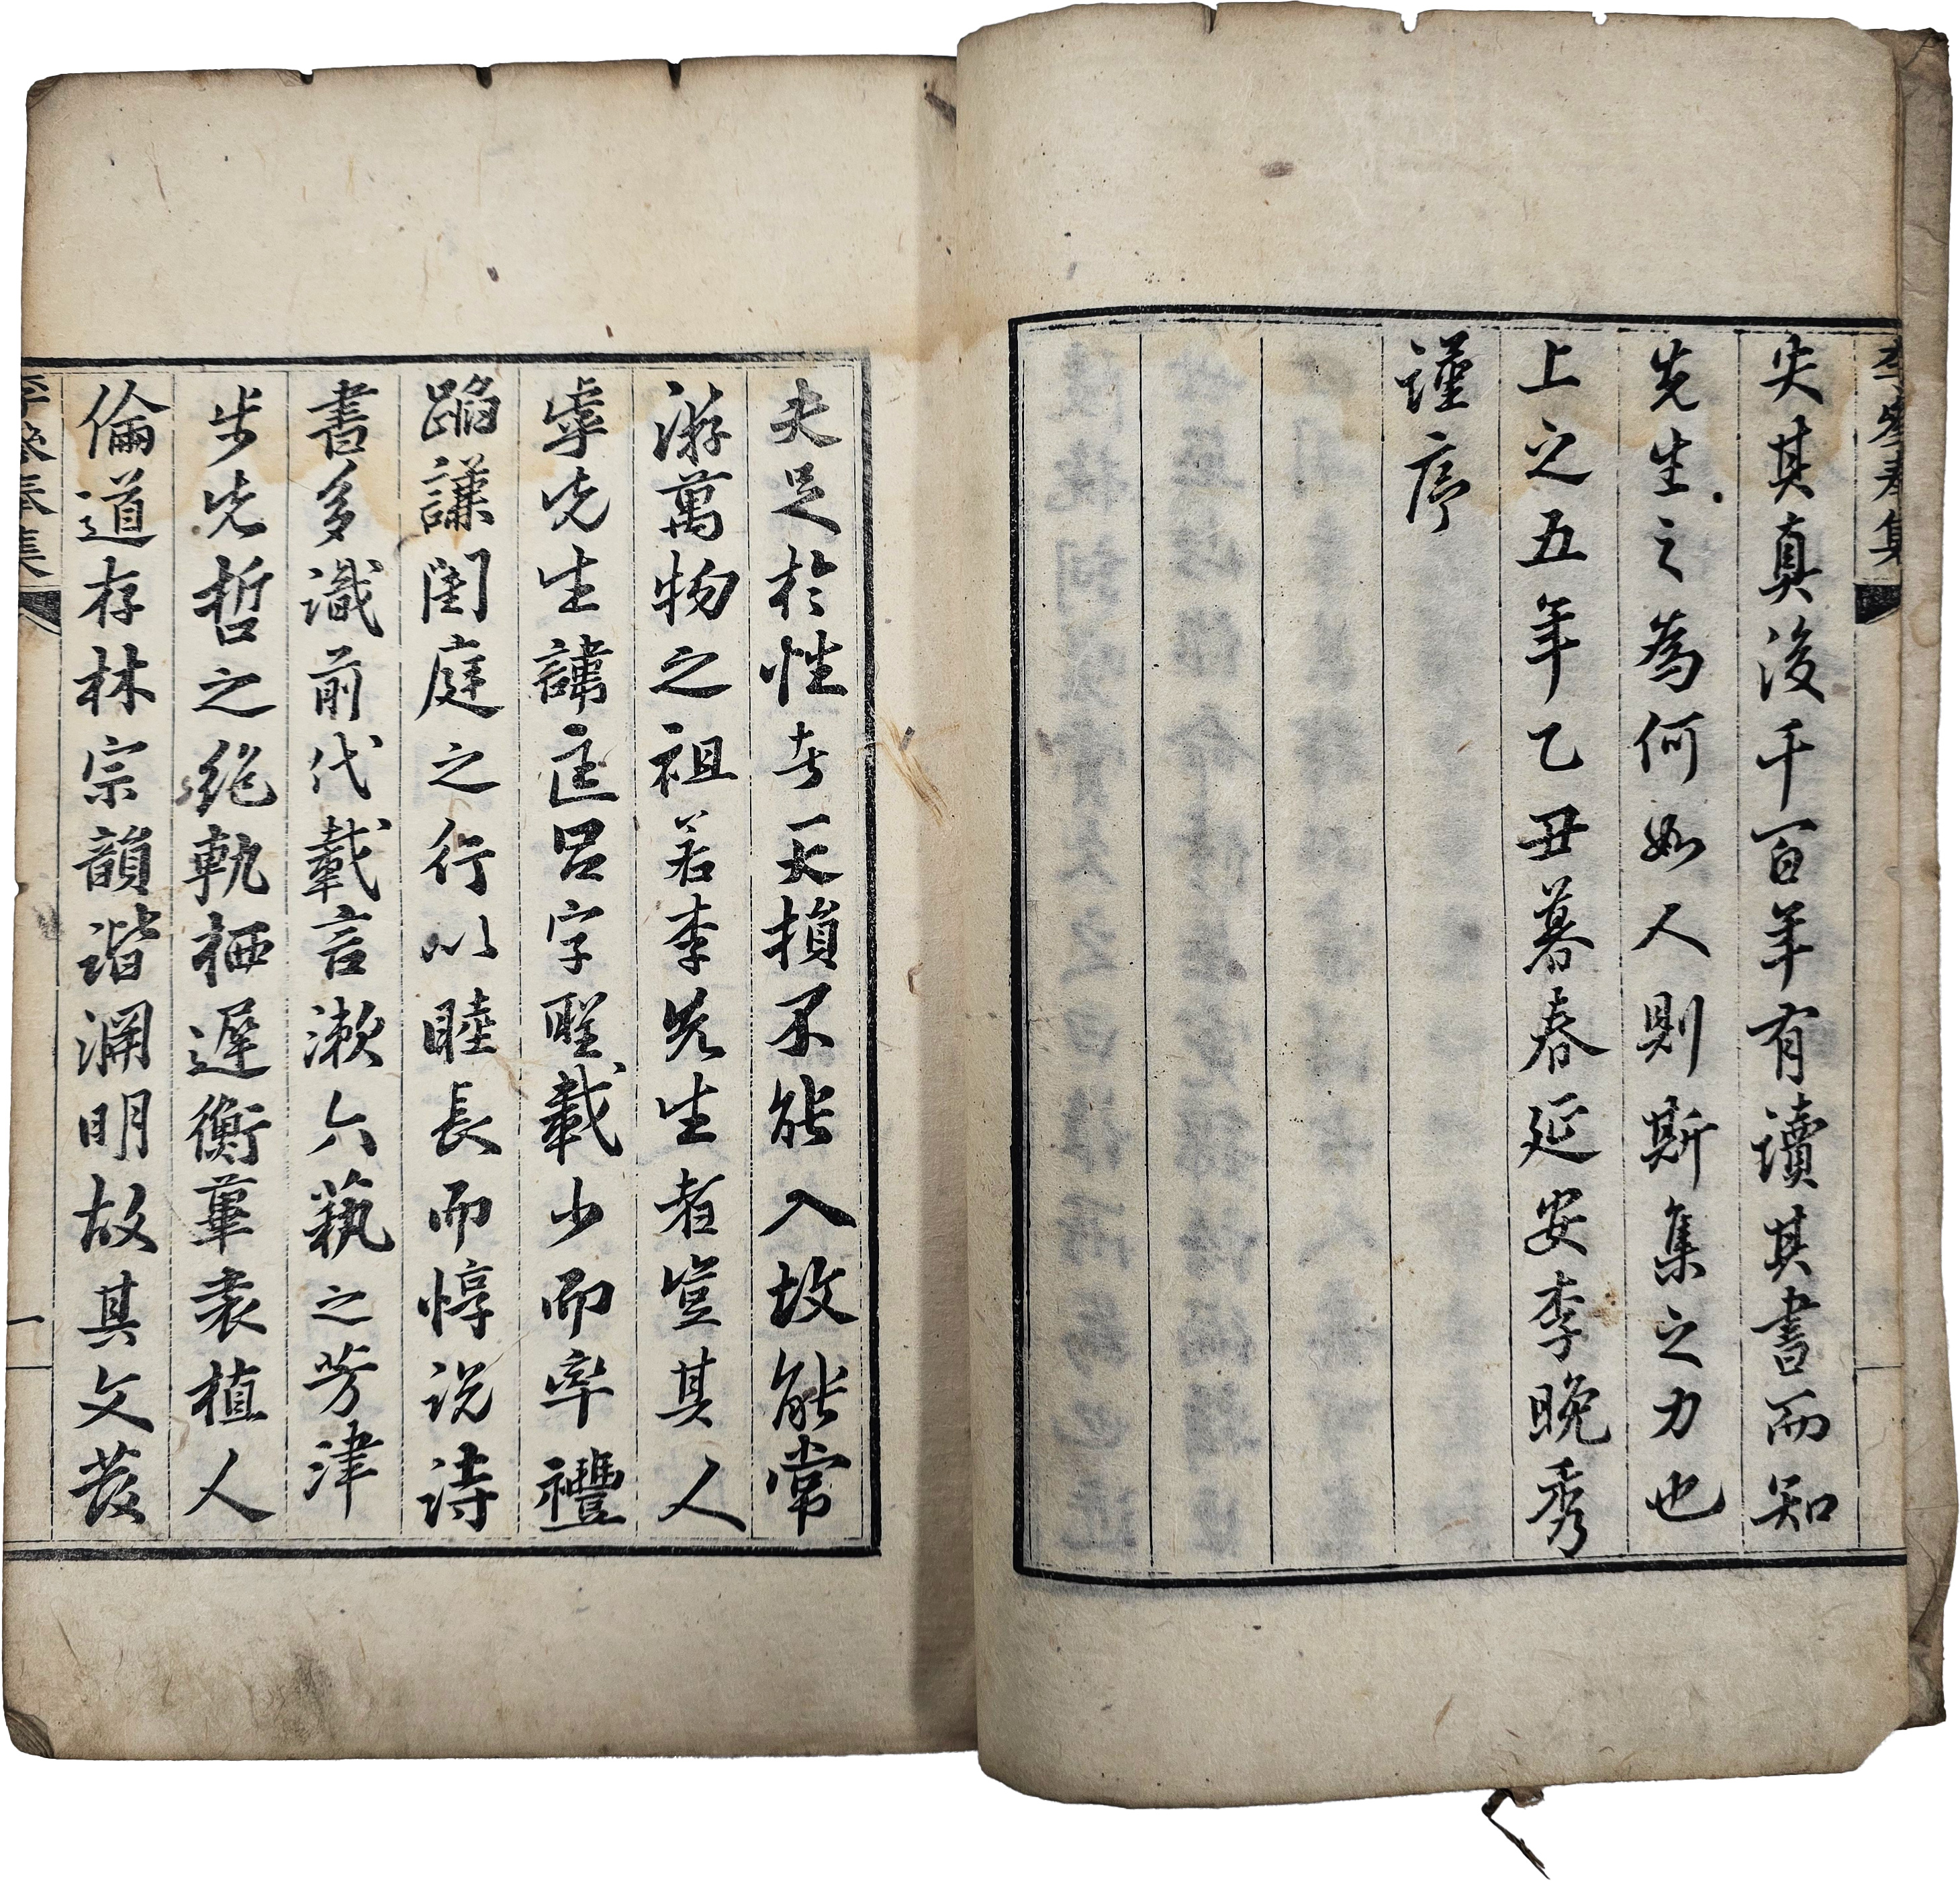 失其真後千百年有讀其書而知
先生之為何如人則斯集之力也
上之五年乙丑暮春延安李晚秀
謹序
夫足於性者天損不能入故能常
游萬物之祖若李先生者豈其人
虖先生諱匡呂字聖載少而率禮
蹈謙閨庭之行以睦長而惇說詩
書多識前代載言漱六藝之芳津
步先哲之絶軌栖遲衡蓽表植人
倫道存林宗韻諧淵明故其文發
李參奉集
李參奉集
一